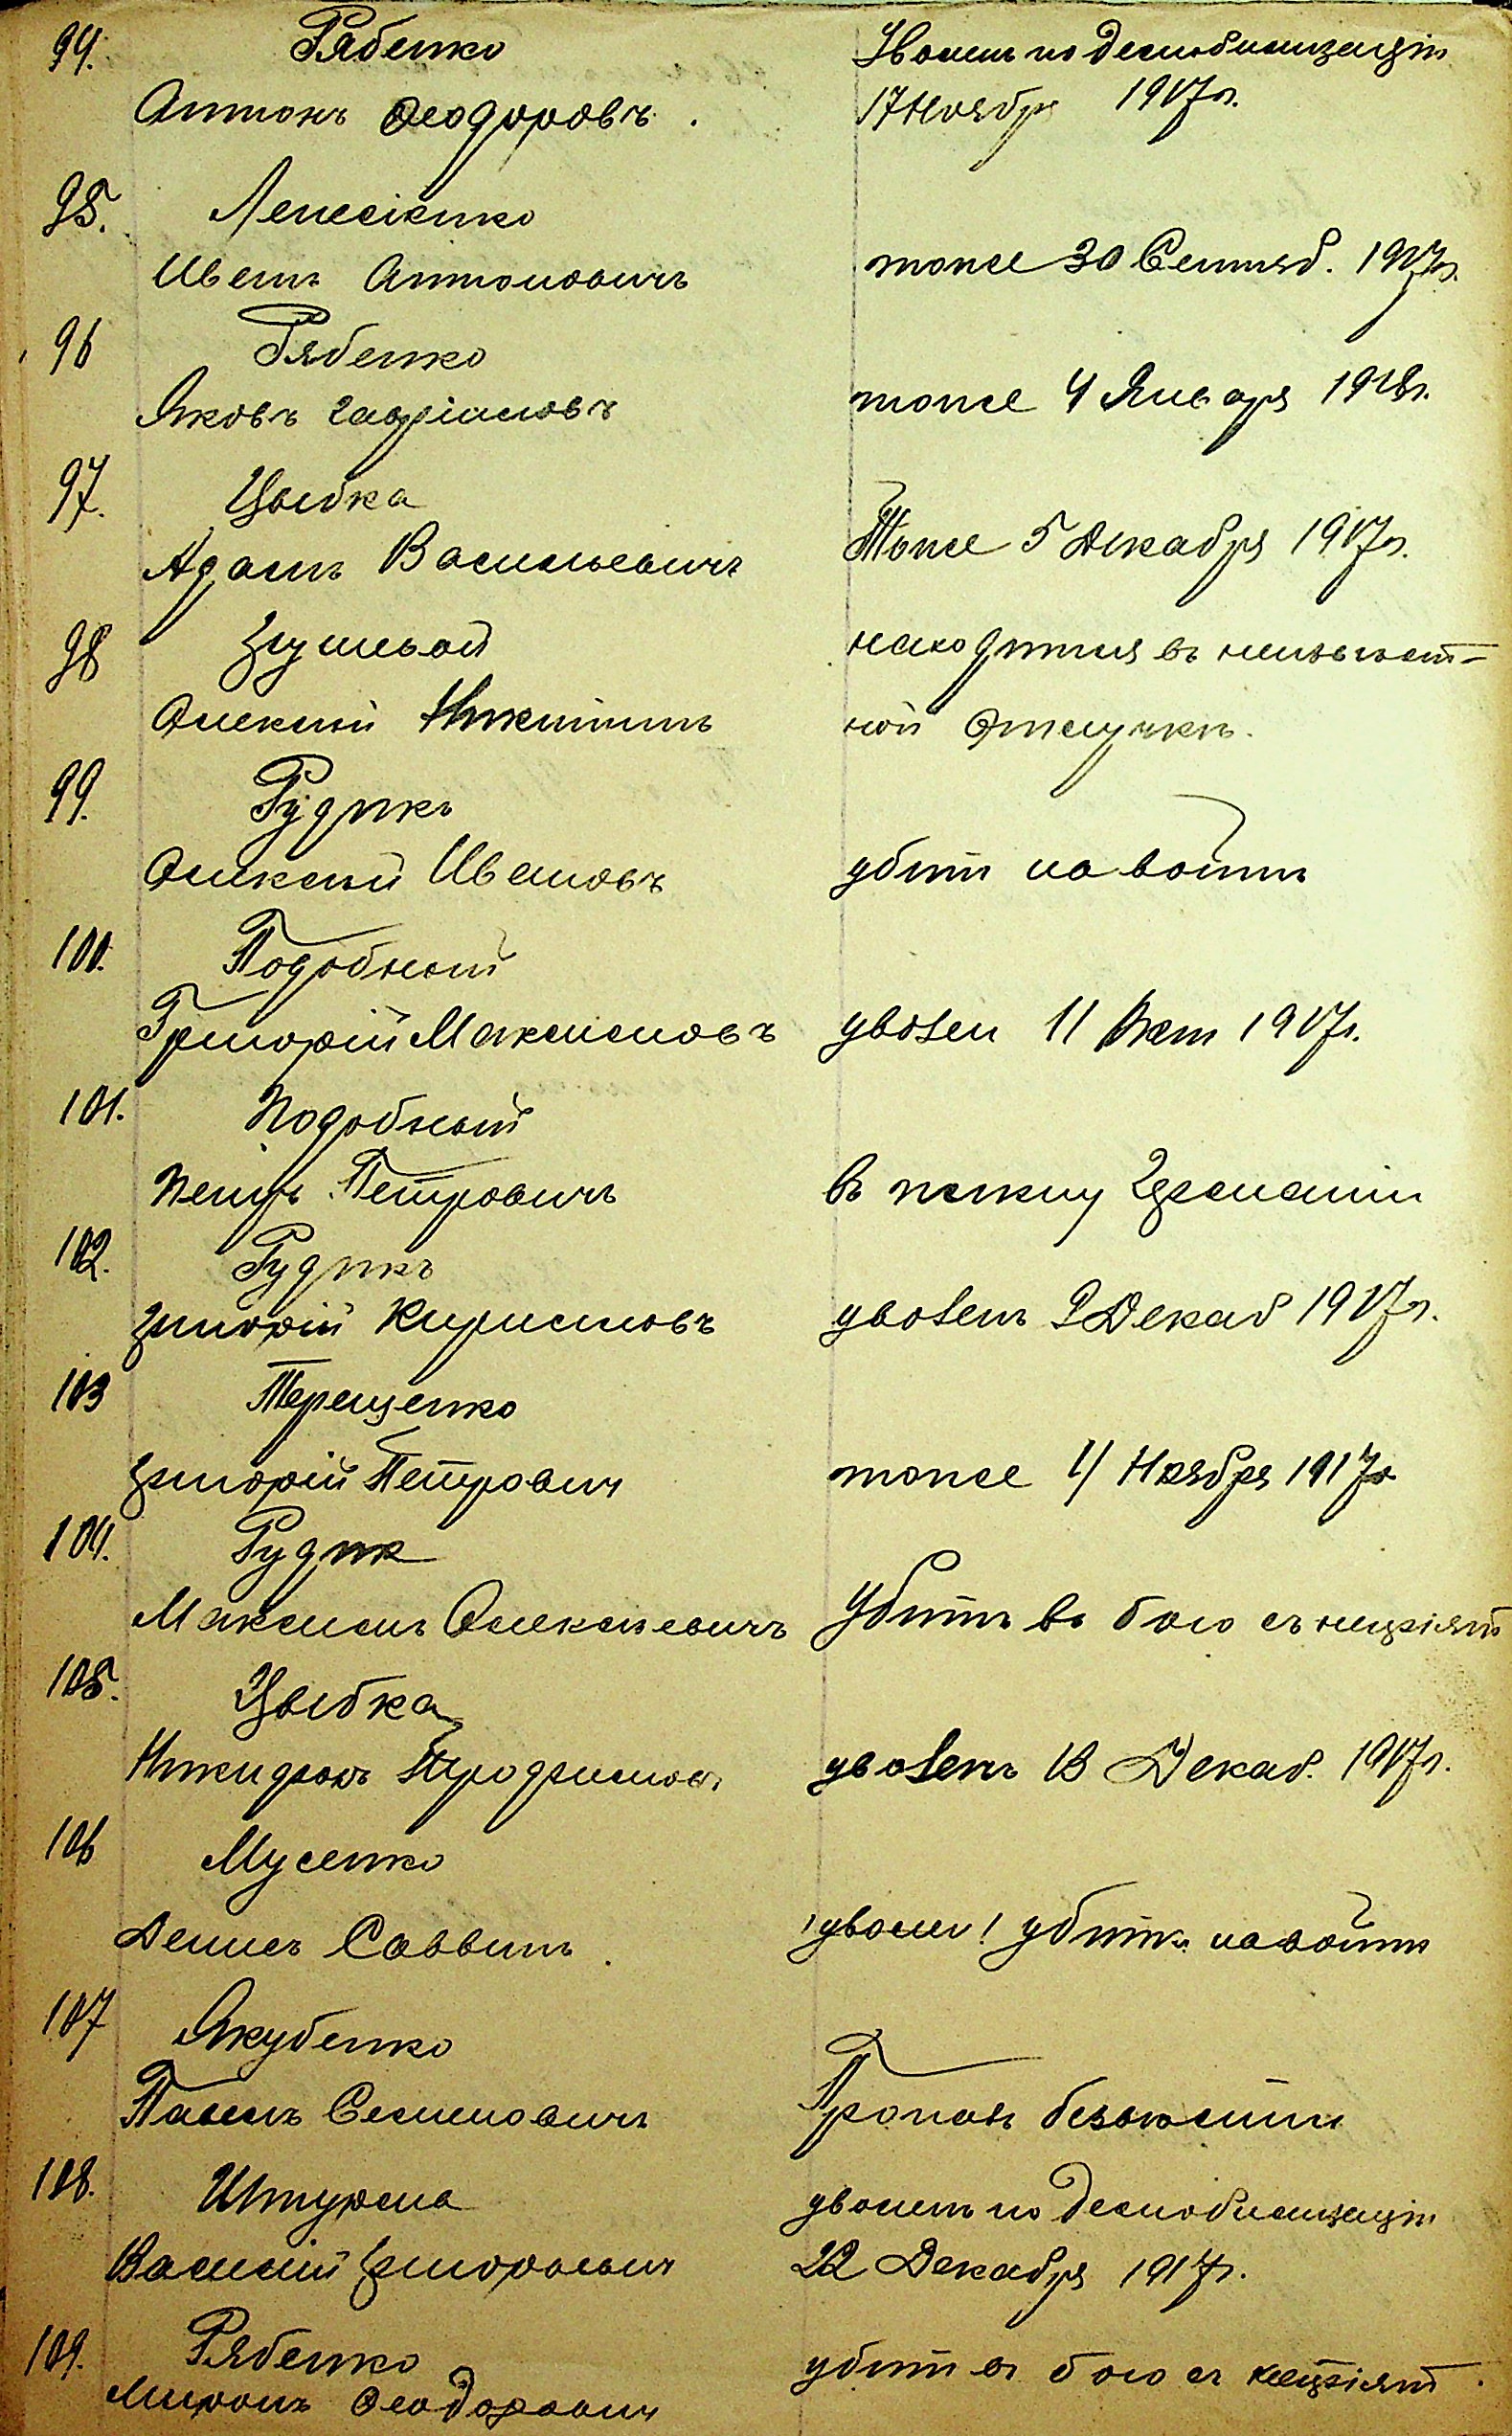 94. Рябенко
Уволенъ по демобилизаціи
Антонъ Ѳеодоровъ.
17 Ноября 1917 г.
95. Лемешко
Иванъ Антоновичъ
тоже 30 Сентяб. 1917 г.
96 Рябенко
Яковъ Гавріиловъ
тоже 4 Января 1918 г.
97. Цыбка
Адамъ Васильевичъ
Тоже 5 Декабря 1917 г.
98
находится въ неизвѣст-
Алексѣй Никитинъ
ной отлучкѣ.
99. Рудикъ
Алексѣй Ивановъ
убит на войнѣ
100. Подобный
Григорій Максимовъ
уволен 11 Окт 1917 г.
101. Подобный
Петръ Петровичъ
в плѣну Германіи
102. Рудикъ
Григорій Кириловъ
уволенъ 9 Декаб 1917 г.
103 Терещенко
Григорій Петрович
тоже 4 Ноября 1917 г.
104. Рудик
Максимъ Алексѣевичъ
Убитъ въ бою съ непріят
105. Цыбка
Никифоръ Трофимовъ
уволенъ 13 Декаб. 1917 г.
106 Мусенко
Денисъ Саввинъ.
уволен! убитъ на войнѣ
107 Якубенко
Павелъ Семеновичъ
Пропалъ безъ вѣсти
108. Штурма
уволенъ по демобилизаціи
Василій Григорьевич
22 Декабря 1917 г.
109. Рябенко
Миронъ Ѳеодорович
убит въ бою съ непріят.